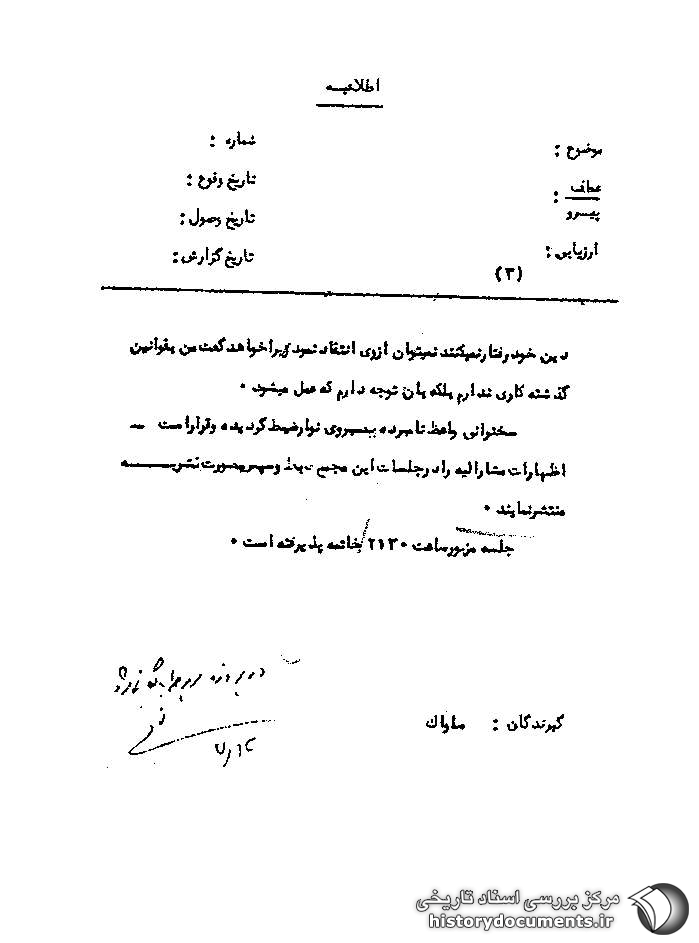 اطلاعیـه
موضوع :
شماره :
عطف
پیـرو :
تاریخ وقوع :
تاریخ وصول :
ارزیابی :
تاریخ گزارش :
(۳)
دین خود رفتار نمیکنند نمیتوان از وی انتقاد نمود زیرا خواهد گفت من بقوانین
گذشته کاری ندارم بلکه بآن توجه دارم که عمل میشود ٠
سخنرانی واعظ نامبرده بر روی نوار ضبط گردیده و قرار است
اظهارات مشارالیه را در جلسات این مجمع و سپس بصورت نشریـــه
منتشر نمایند ٠
جلسه مزبور ساعت ۲۱۳۰ خاتمه پذیرفته است ٠
گیرندگان : ساواك
در پرونده
۷٫۱۴
مرکز بررسی اسناد تاریخی
historydocuments.ir